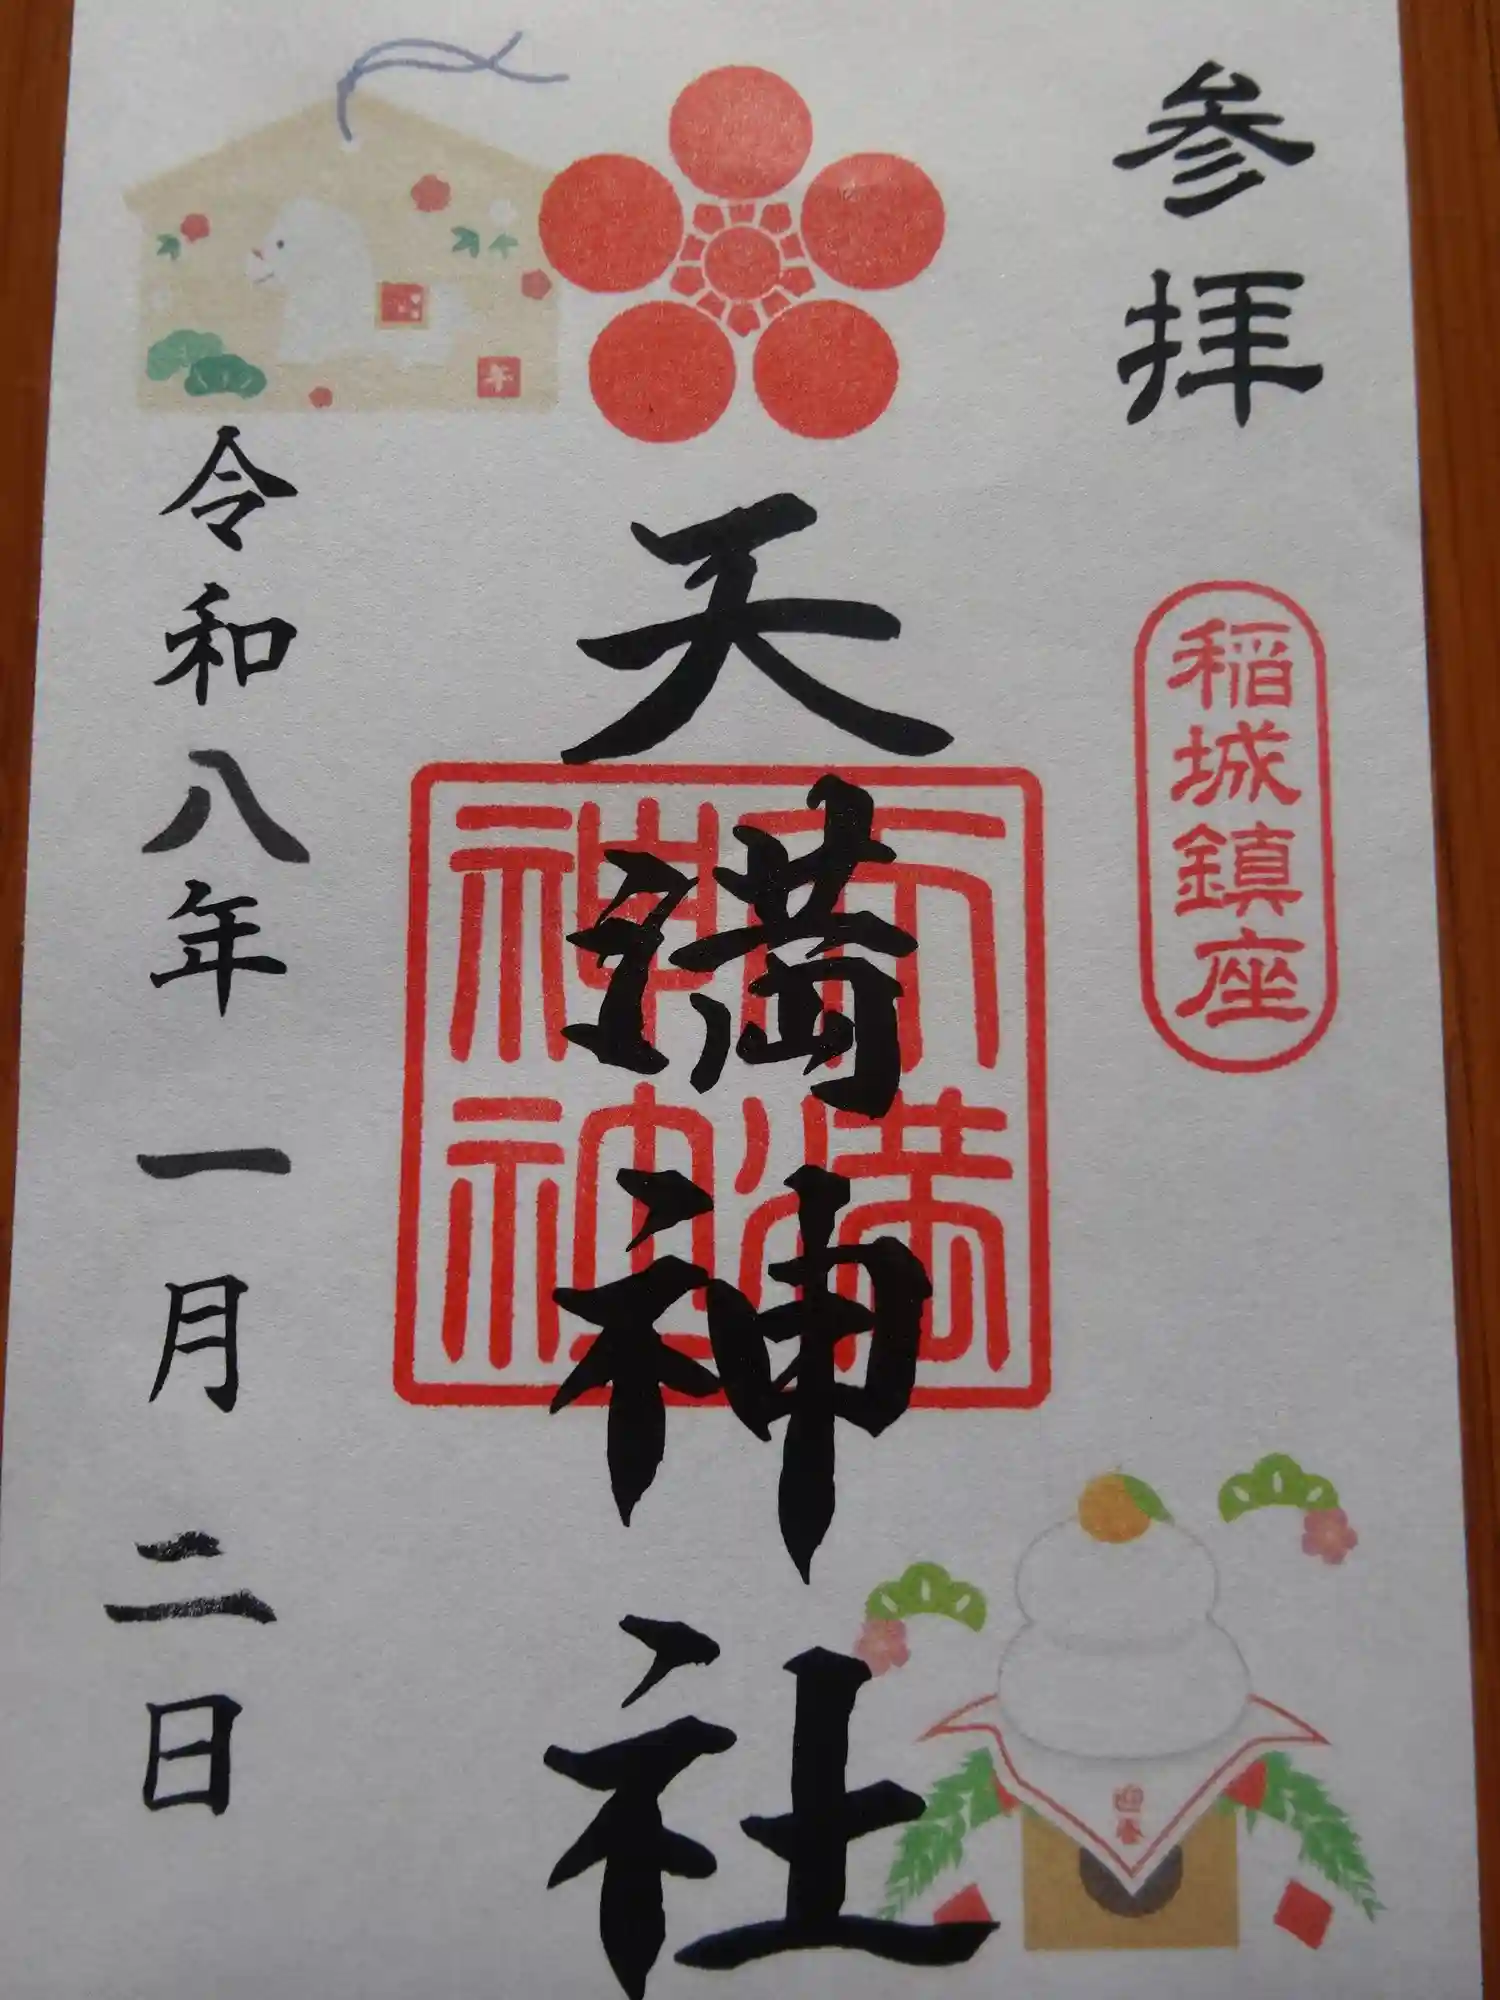 参拝
稲城鎮座
天満神社
天満
神社
令和八年一月二日
午
迎春